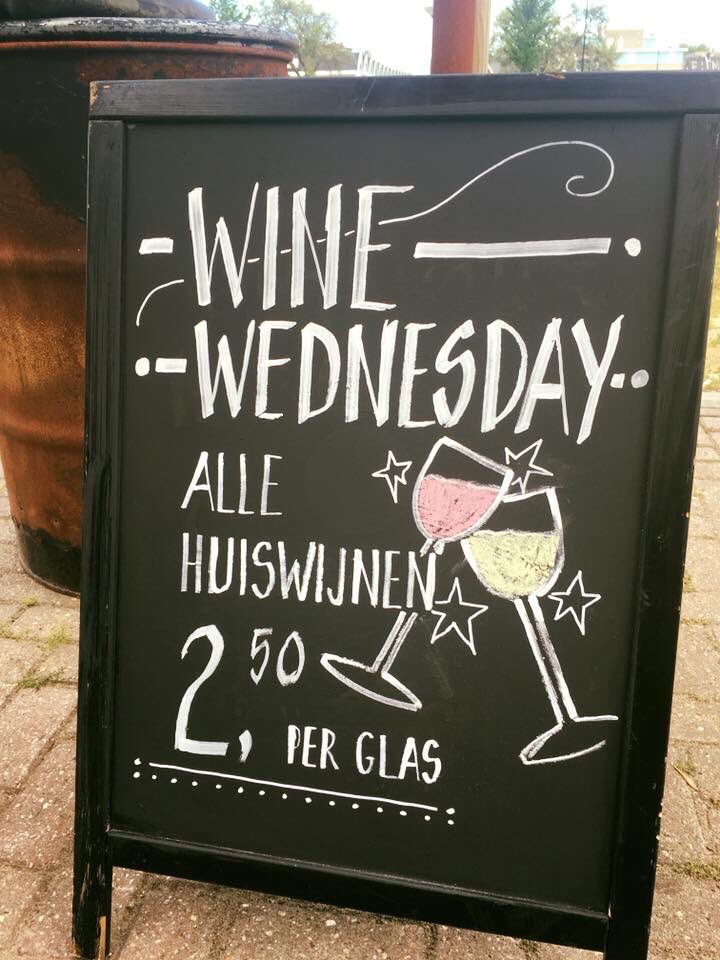 - WINE —.
·- WEDNESDAY-·
ALLE
HUISWIJNEN
2,50
PER GLAS